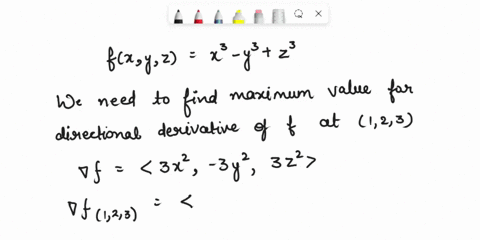 f(x,y,z) = x³ - y³ + z³
We need to find maximum value for
directional derivative of f at (1,2,3)
∇f = < 3x², -3y², 3z² >
∇f(1,2,3) = <